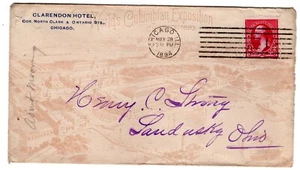 CLARENDON HOTEL,
COR. NORTH CLARK & ONTARIO STS.,
CHICAGO.
Columbian Exposition
CHICAGO, ILL.
NOV 28
Henry C. Strong
Sandusky
Ohio